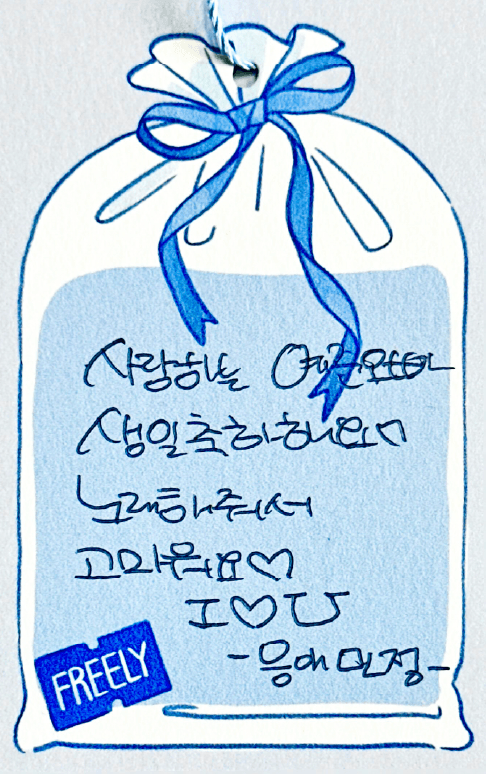 사랑하는
생일축하해요♡
노래해줘서
고마워요♡
I♡U
-응애 민정-
FREELY